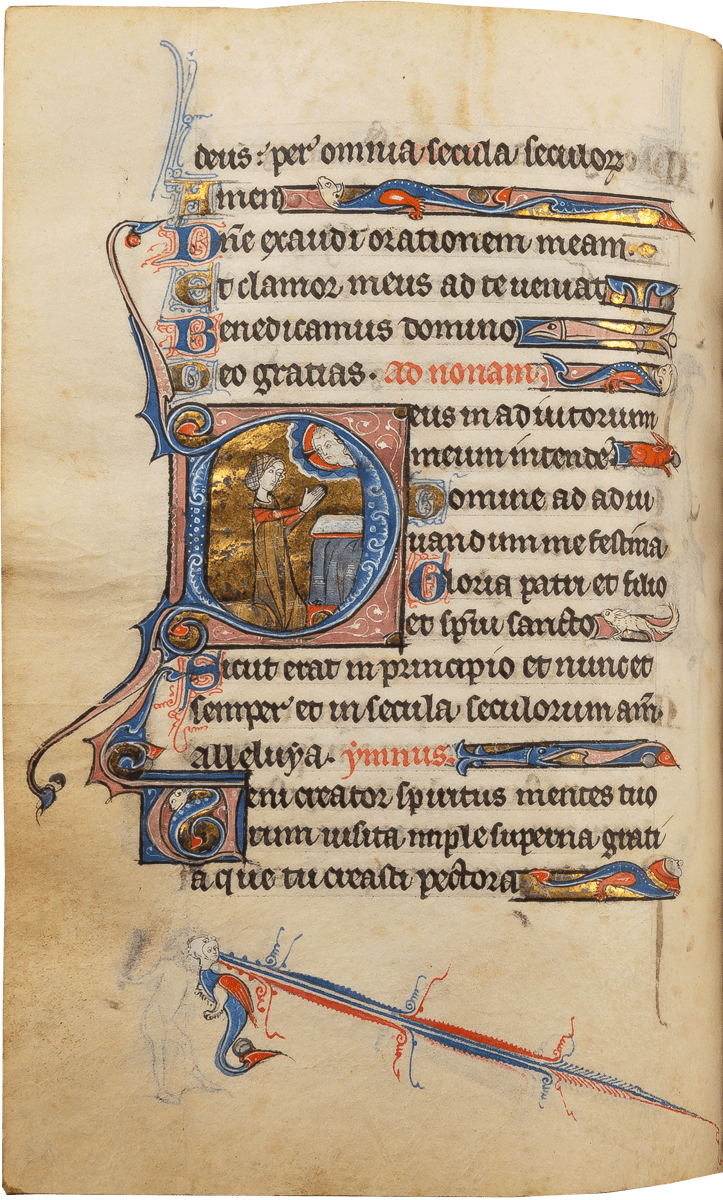 deus: per omnia secula seculorꝝ
Amen
Dñe exaudi orationem meam.
Et clamor meus ad te ueniat
Benedicamus domino
Deo gratias. ad nonam.
Deus in adiutorium
meum intende
Domine ad adiu
uandum me festina
Gloria patri et filio
et spũi sancto
Sicut erat in principio et nunc et
semper et in secula seculorum am̃.
alleluya. ymnus.
Veni creator spiritus mentes tuo
rum uisita imple superna grati
a que tu creasti pectora